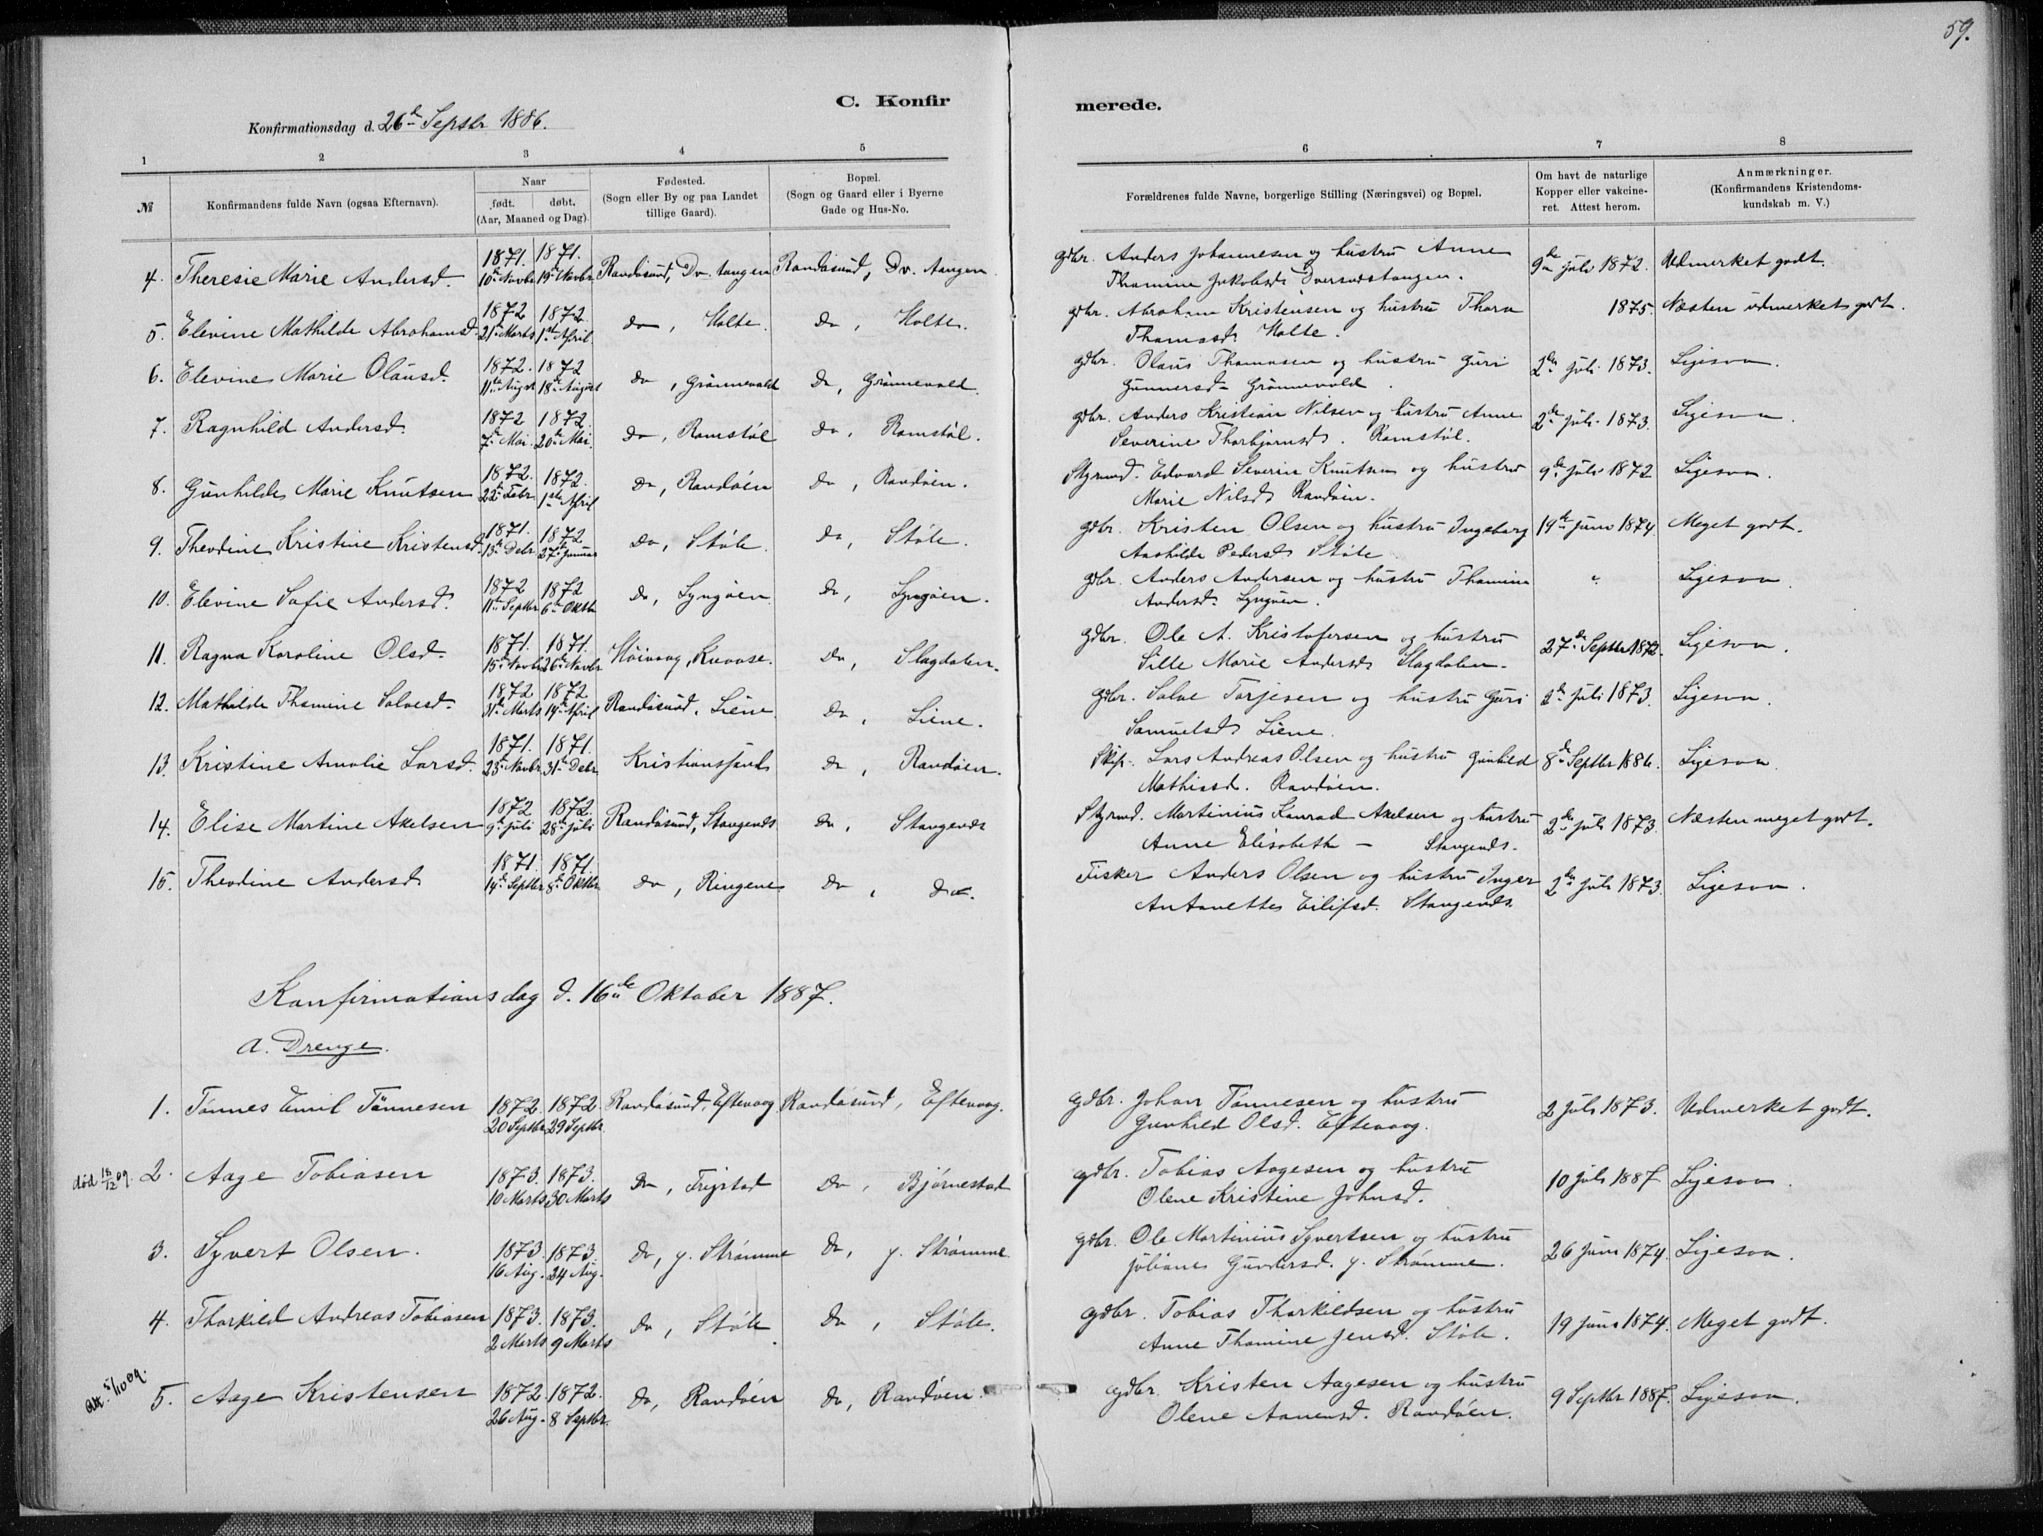 59.
C. Konfir merede.
Konfirmationsdag d. 26de Septbr 1886.
1 2 3 4 5 6 7 8
№ Konfirmandens fulde Navn (ogsaa Efternavn). Naar født. døbt. (Aar, Maaned og Dag). Fødested. (Sogn eller By og paa Landet tillige Gaard). Bopæl. (Sogn og Gaard eller i Byerne Gade og Hus-No. Forældrenes fulde Navne, borgerlige Stilling (Næringsvei) og Bopæl. Om havt de naturlige Kopper eller vakcineret. Attest herom. Anmærkninger. (Konfirmandens Kristendomskundskab m. V.)
4. Theresie Marie Andersd. 1871. 10de Novbr 1871. 19de Novbr Randøsund, Dv. tangen Randøsund, Dv. tangen. gdbr. Anders Johannesen og hustru Anne
Thomine Jakobsd. Dversnestangen. 9de juli 1872. Udmerket godt.
5. Elevine Mathilde Abrahamsd. 1872 21de Marts 1872. 1ste April do, Holte. do, Holte. gdbr. Abraham Kristensen og hustru Thora
Thomasd. Holte. 1875. Næsten udmerket godt.
6. Elevine Marie Olausd. 1872. 11te August 1872 18de August do, Grønnevold do, Grønnevold. gdbr. Olaus Thomasen og hustru Guri
Gunnersd. Grønnevold. 2den juli 1873. Ligesaa.
7. Ragnhild Andersd. 1872 7de Mai. 1872. 20de Mai. do, Ramstøl do, Ramstøl. gdbr. Anders Kristian Nilsen og hustru Anne
Severine Thorbjørnsd. Ramstøl. 2den juli 1873. Ligesaa
8. Gunhilde Marie Knutsen 1872. 22de Febr. 1872. 1ste April do, Randøen do, Randøen. Styrmd. Edvard Severin Knutsen og hustru
Marie Nilsd. Randøen. 9de juli 1872 Ligesaa.
9. Theodine Kristine Kristensd. 1871. 13de Debr. 1872. 27de Januar do, Støle. do, Støle. gdbr. Kristen Olsen og hustru Ingeborg
Aashilde Pedersd. Støle 19de juni 1874. Meget godt.
10. Elevine Sofie Andersd. 1872 11te Septbr 1872 6te Oktbr do, Lyngøen do, Lyngøen. gdbr. Anders Andersen og hustru Thomine
Andersd. Lyngøen. " Ligesaa.
11. Ragna Karoline Olsd. 1871. 15de Novbr 1871. 26de Novbr Høivaag, Kvaase. do, Slagdalen. gdbr. Ole A. Kristofersen og hustru
Sille Marie Andersd. Slagdalen. 27de Septbr 1872. Ligesaa.
12. Mathilde Thomine Salvesd. 1872 31te Marts 1872 14de April Randøsund, Liene. do, Liene. gdbr. Salve Torjesen og hustru Guri
Samuelsd. Liene. 2den juli 1873. Ligesaa.
13. Kristine Amalie Larsd. 1871. 23de Novbr 1871. 31te Debr Kristianssand do, Randøen. Skip. Lars Andreas Olsen og hustru Gunhild
Mathisd. Randøen. 8de Septbr 1886. Ligesaa.
14. Elise Martine Akelsen 1872 9de juli 1872. 28de juli Randøsund, Stangenes do, Stangenes Styrmd. Martinius Konrad Akelsen og hustru
Anne Elisabeth — Stangenes. 2den juli 1873. Næsten meget godt.
15. Theodine Andersd. 1871. 14de Septbr 1871. 8de Oktbr do, Ringene do, do. Fisker Anders Olsen og hustru Inger
Antonette Eilifsd. Stangenes 2den juli 1873. Ligesaa.
Konfirmations dag d. 16de Oktober 1887.
a. Drenge.
1. Tønnes Emil Tønnesen 1872. 20 Septbr 1872 29 Septbr. Randøsund, Eftevaag Randøsund, Eftevaag. gdbr. Johan Tønnesen og hustru
Gunhild Olsd. Eftevaag. 2 juli 1873. Udmerket godt.
død 18/12 09. 2. Aage Tobiasen 1873. 10 Marts 1873. 30 Marts do, Frigstad do, Bjørnestad gdbr. Tobias Aagesen og hustru
Olene Kristine Johnsd. 10 juli 1887 Ligesaa.
3. Syvert Olsen. 1873 16 Aug. 1873. 24 Aug. do, y. Strømme do, y. Strømme gdbr. Ole Martinius Syvertsen og hustru
Juliane Gundersd. y. Strømme. 26 juni 1874. Ligesaa.
4. Thorkild Andreas Tobiasen 1873 2 Marts 1873. 9 Marts do, Støle do, Støle. gdbr. Tobias Thorkildsen og hustru
Anne Thomine Jensd. Støle. 19 juni 1874. Meget godt.
Att. 5/10 09. 5. Aage Kristensen 1872 26 Aug. 1872. 8 Septbr. do, Randøen do, Randøen. gdbr. Kristen Aagesen og hustru
Olene Aanensd. Randøen. 9 Septbr 1887. Ligesaa.